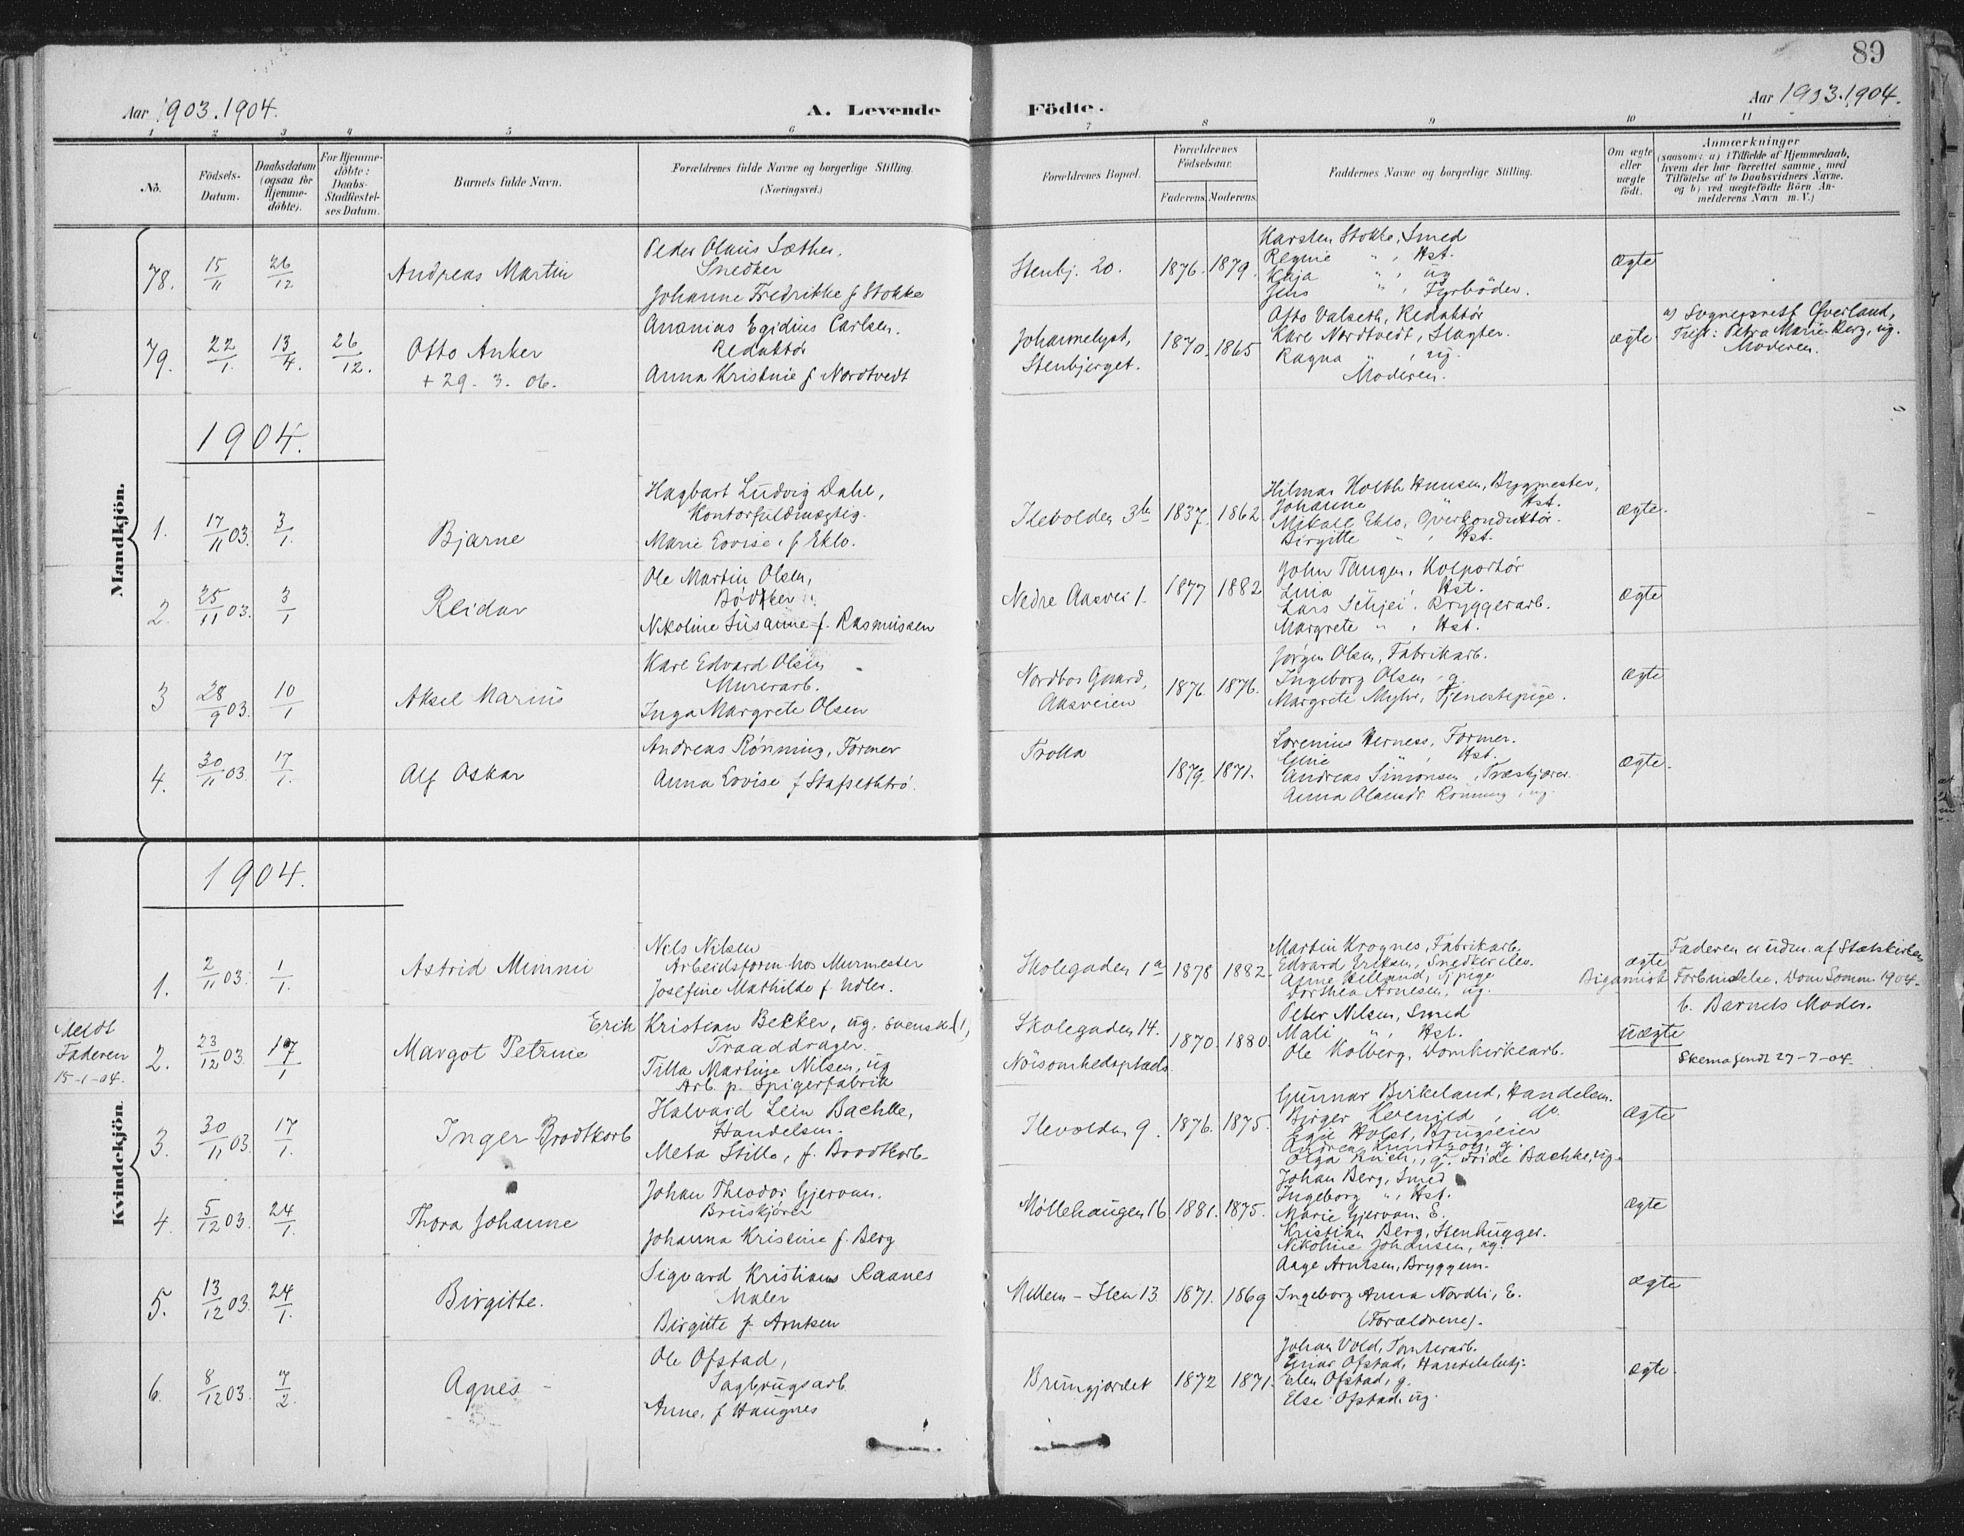 89
Aar 1903.1904.
A. Levende Födte.
Aar 1903.1904.
1 2 3 4 5 6 7 8 9 10 11
No.
Födsels-Datum.
Daabsdatum (ogsaa for Hjemme-döbte).
For Hjemme-döbte: Daabs-Stadfæstel-ses Datum.
Barnets fulde Navn.
Forældrenes fulde Navne og borgerlige Stilling. (Næringsvei.)
Forældrenes Bopæl.
Forældrenes Födselsaar.
Faderens. Moderens.
Faddernes Navne og borgerlige Stilling.
Om ægte eller uægte födt.
Anmærkninger
(saasom: a) i Tilfælde af Hjemmedaab,
hvem der har forrettet samme, med
Tilföielse af to Daabsvidners Navne,
og b) ved uægtefödte Börn An-
melderens Navn m. V.)
Mandkjön.
78. 15/11 26/12 Andreas Martin
Peder Olaus Sæther,
Snedker
Johanne Fredrikke f Stokke
Stenbj. 20. 1876. 1879.
Karsten Stokke, Smed
Regine " , Hst.
Kaja " , ug
Jens " , Fyrböder.
ægte
79. 22/1. 13/4. 26/12. Otto Anker
+ 29. 3. 06.
Ananias Egidius Carlsen.
Redaktör
Anna Kristine f Nordtvedt
Johannelyst,
Stenbjerget.
1870. 1865
Otto Valseth, Redaktör
Kare Nordtvedt, Slagter.
Ragna " , ug.
Moderen.
ægte.
a) Sogneprest Överland,
Test: Petra Marie Berg, ug.
Moderen.
1904.
1. 17/11 03. 3/1. Bjarne
Hagbart Ludvig Dahl,
Kontorfuldmægtig.
Marie Lovise f Eklo.
Ilevolden 3b 1837. 1862.
Hilmar Holbth Hansen, Bygmester,
Johanne " Hst.
Mikael Eklo, Overkonduktör.
Birgitte " , Hst.
ægte.
2. 25/11 03. 3/1 Reidar
Ole Martin Olsen,
Bödker
Nikoline Susanne f. Rasmussen
Nedre Aasvei 1. 1877 1882
John Tangen, Kolportör
Lina " , Hst.
Lars Schjei, Bryggerarb.
Margrete " , Hst.
ægte
3 28/9 03. 10/1 Aksel Marius
Karl Edvard Olsen
Murerarb.
Inga Margrete Olsen
Nordbos Gaard,
Aasveien
1876. 1876.
Jørgen Olsen, Fabrikarb.
Ingeborg Olsen, g.
Margrete Myhr, Tjenestepige.
ægte
4. 30/11 03. 17/1. Alf Oskar
Andreas Rönning, Former
Anna Lovise f Stafsethtrö.
Trolla
1879. 1871.
Lorenius Herness, Former.
Gine " , Hst.
Andreas Simonsen, Træskjærer
Anna Olausdr Rönning, ug.
ægte.
Kvindekjön.
1904.
1. 2/11 03. 1/1. Astrid Mimmi
Nils Nilsen
Arbeidsform. hos Murmester
Josefine Mathilde f. Udler.
Skolegaden 1a 1878 1882.
Martin Krognes, Fabrikarb.
Edvard Eriksen, Snedkerelev.
Anne Helland, Tj.pige
Dorthea Arnesen, ug.
ægte
Bigamist
Faderen er udm. af Statskirken
Forbindelse. Dom Somm 1904.
b. Barnets Moder.
Meldt
Faderen
15-1-04.
2. 23/12 03. 17/1 Margot Petrine
Erik Kristian Becker, ug. svensk (!)
Traaddrager.
Tilla Martine Nilsen, ug
Arb. p. Spigerfabrik
Skolegaden 14.
Nöisomhedsplads.
1870. 1880.
Peter Nilsen, Smed
Mali " , Hst.
Ole Kolberg, Domkirkearb.
uægte
Skema sendt 27-7-04.
3. 30/11 03. 17/1. Inger Brodtkorb
Halvard Lein Bachke,
Handelsm.
Meta Stille, f. Brodtkorb.
Ilevolden 9. 1876. 1875.
Gunnar Birkeland, Handelsm.
Birger Hevenild, do.
Egil Holst, Brugseier
Andrea Lundtzog, g.
Olga Buch, g. Fride Bachke, ug.
ægte
4. 5/12 03. 24/1. Thora Johanne
Johan Theodor Gjervan.
Bruskjörer
Johanna Kristine f. Berg
Møllehaugen 16. 1881. 1875.
Johan Berg, Smed
Ingeborg ", Hst.
Marie Gjervan. E.
Kristian Berg, Stenhugger.
Nikoline Johansen, ug.
ægte
5. 13/12 03. 24/1. Birgitte.
Sigvard Kristian Raanes
Maler
Birgitte f. Arntsen
Mellem-Ilen 13 1871. 1869
Aage Arntsen, Bryggem.
Ingeborg Anna Nordli, E.
(Forældrene).
ægte
6. 8/12 03. 7/2. Agnes
Ole Ofstad,
Sagbrugsarb
Anne, f Haugnes
Brungjordet 1872 1871.
Johan Vold, Tomterarb.
Einar Ofstad, Handelsbetj.
Elen Ofstad, g.
Else Ofstad, ug.
ægte.